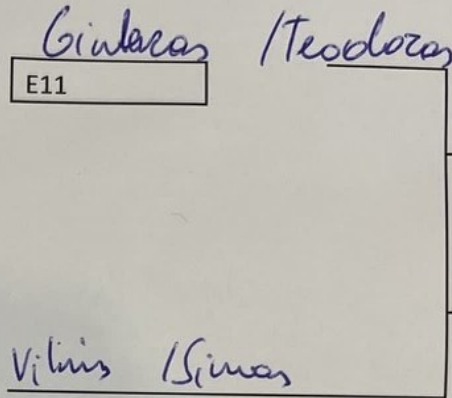 Gintaras /Teodoras
E11
Vilius /Simas